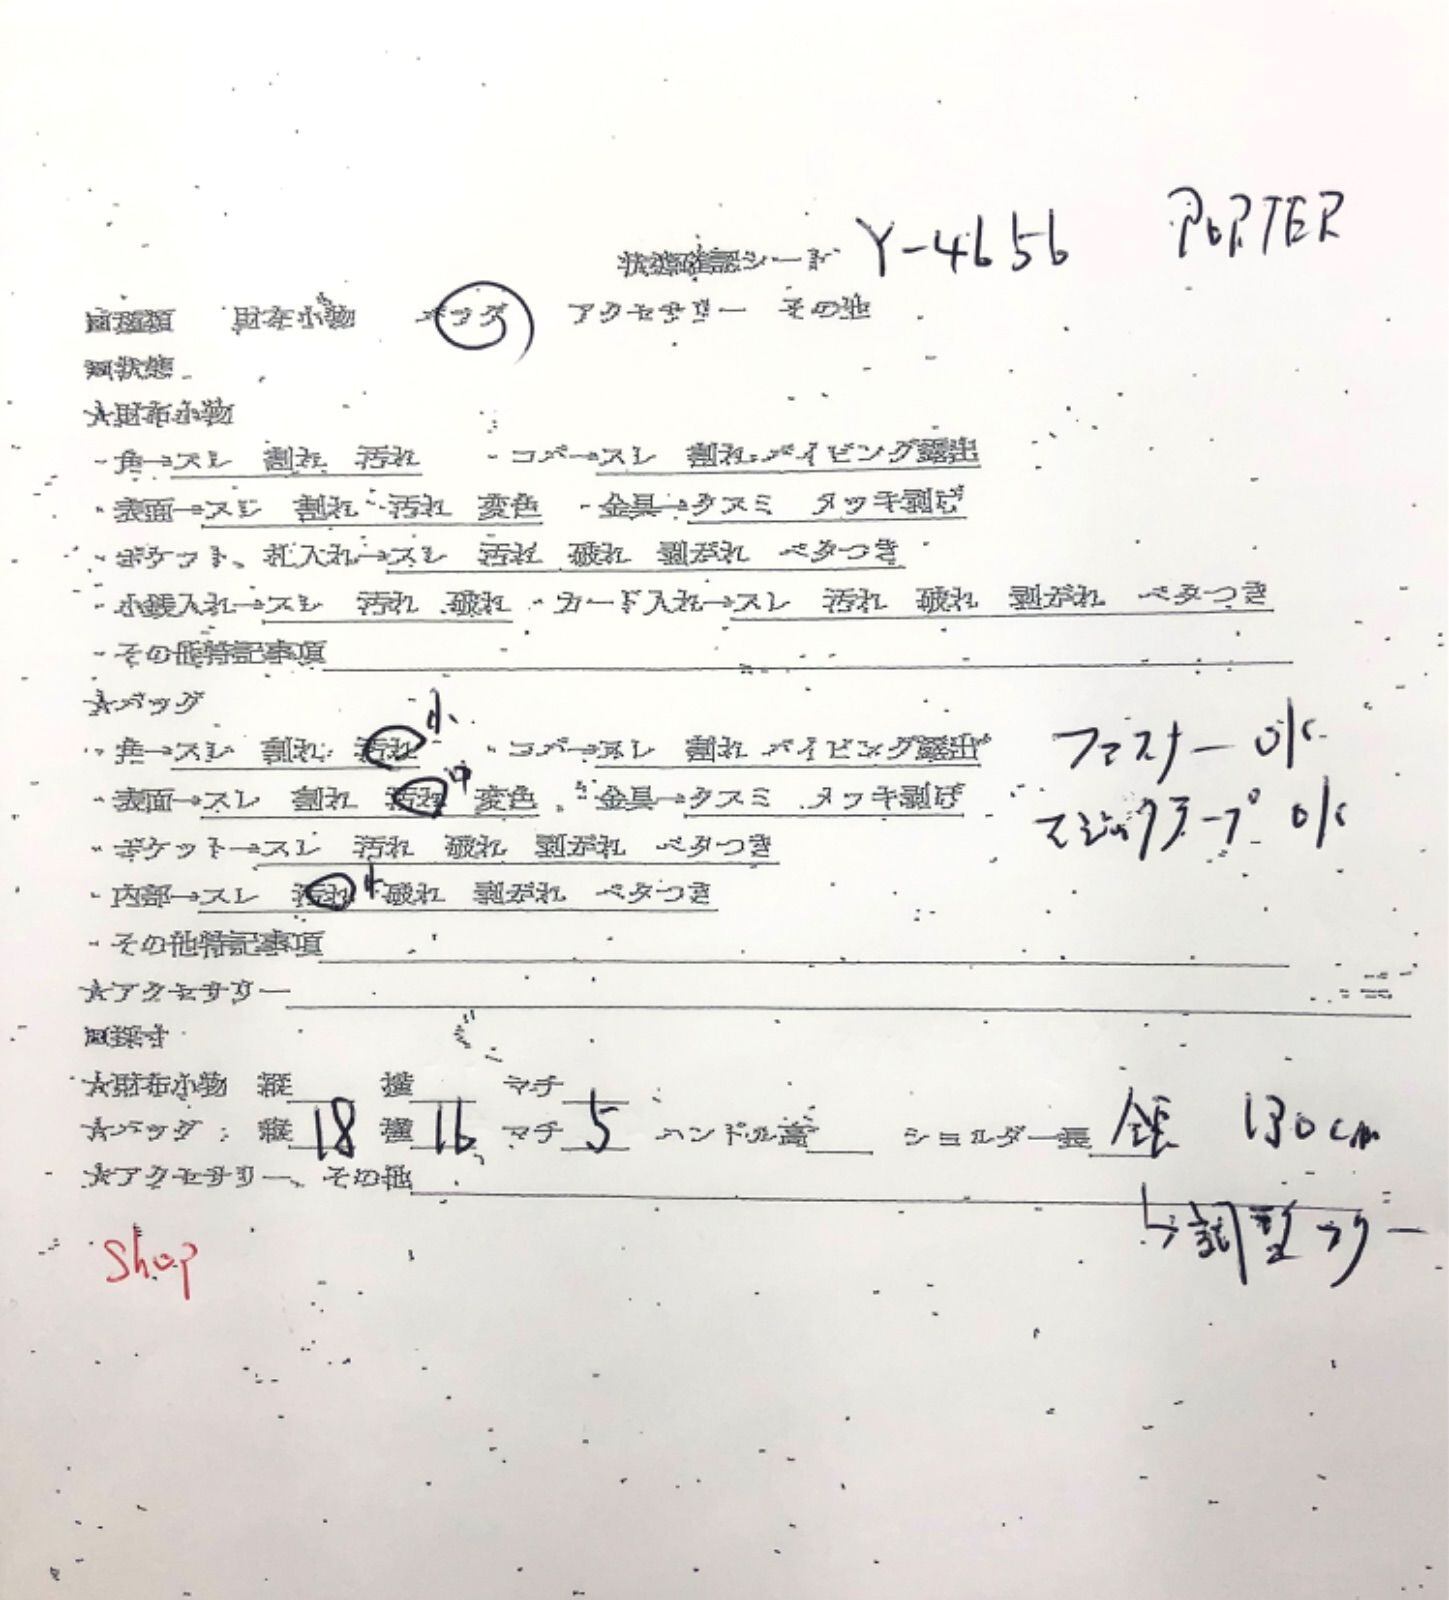 状態確認シート Y-4656 PORTER
□種類 財布小物 バッグ アクセサリー その他
□状態
★財布小物
・角→スレ 割れ 汚れ ・コバ→スレ 割れ パイピング露出
・表面→スレ 割れ 汚れ 変色 ・金具→クスミ メッキ剥げ
・ポケット、札入れ→スレ 汚れ 破れ 剥がれ ベタつき
・小銭入れ→スレ 汚れ 破れ ・カード入れ→スレ 汚れ 破れ 剥がれ ベタつき
・その他特記事項
★バッグ
・角→スレ 割れ 汚れ 小 ・コバ→スレ 割れ パイピング露出 ファスナー ok
・表面→スレ 割れ 汚れ 中 変色 ・金具→クスミ メッキ剥げ マジックテープ ok
・ポケット→スレ 汚れ 破れ 剥がれ ベタつき
・内部→スレ 汚れ 小 破れ 剥がれ ベタつき
・その他特記事項
★アクセサリー
□採寸
★財布小物 縦 横 マチ
★バッグ 縦 18 横 16 マチ 5 ハンドル高 ショルダー長 全長 130cm
★アクセサリー、その他
Shop